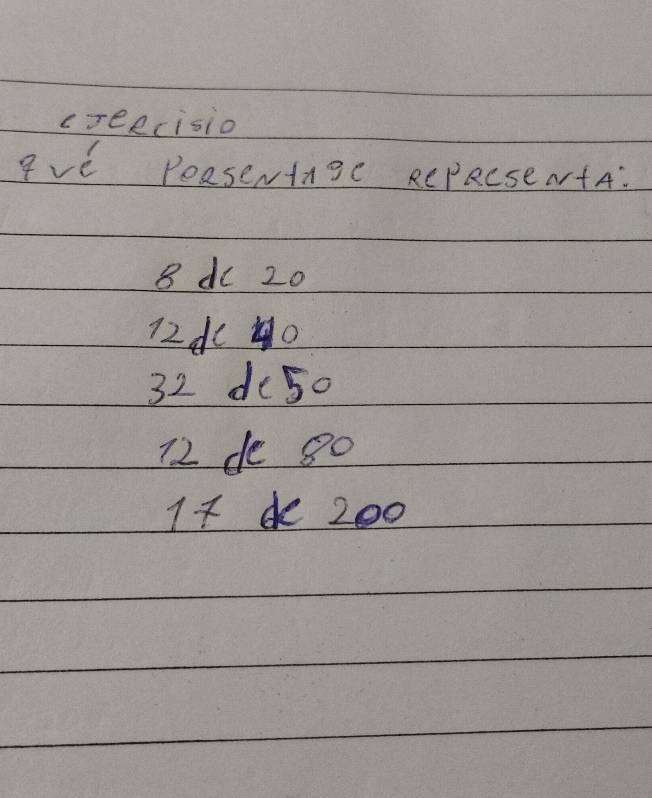 eJeRcisio
qué PoRsentage RePResentA:
8 de 20
12 de 40
32 de 50
12 de 80
17 de 200